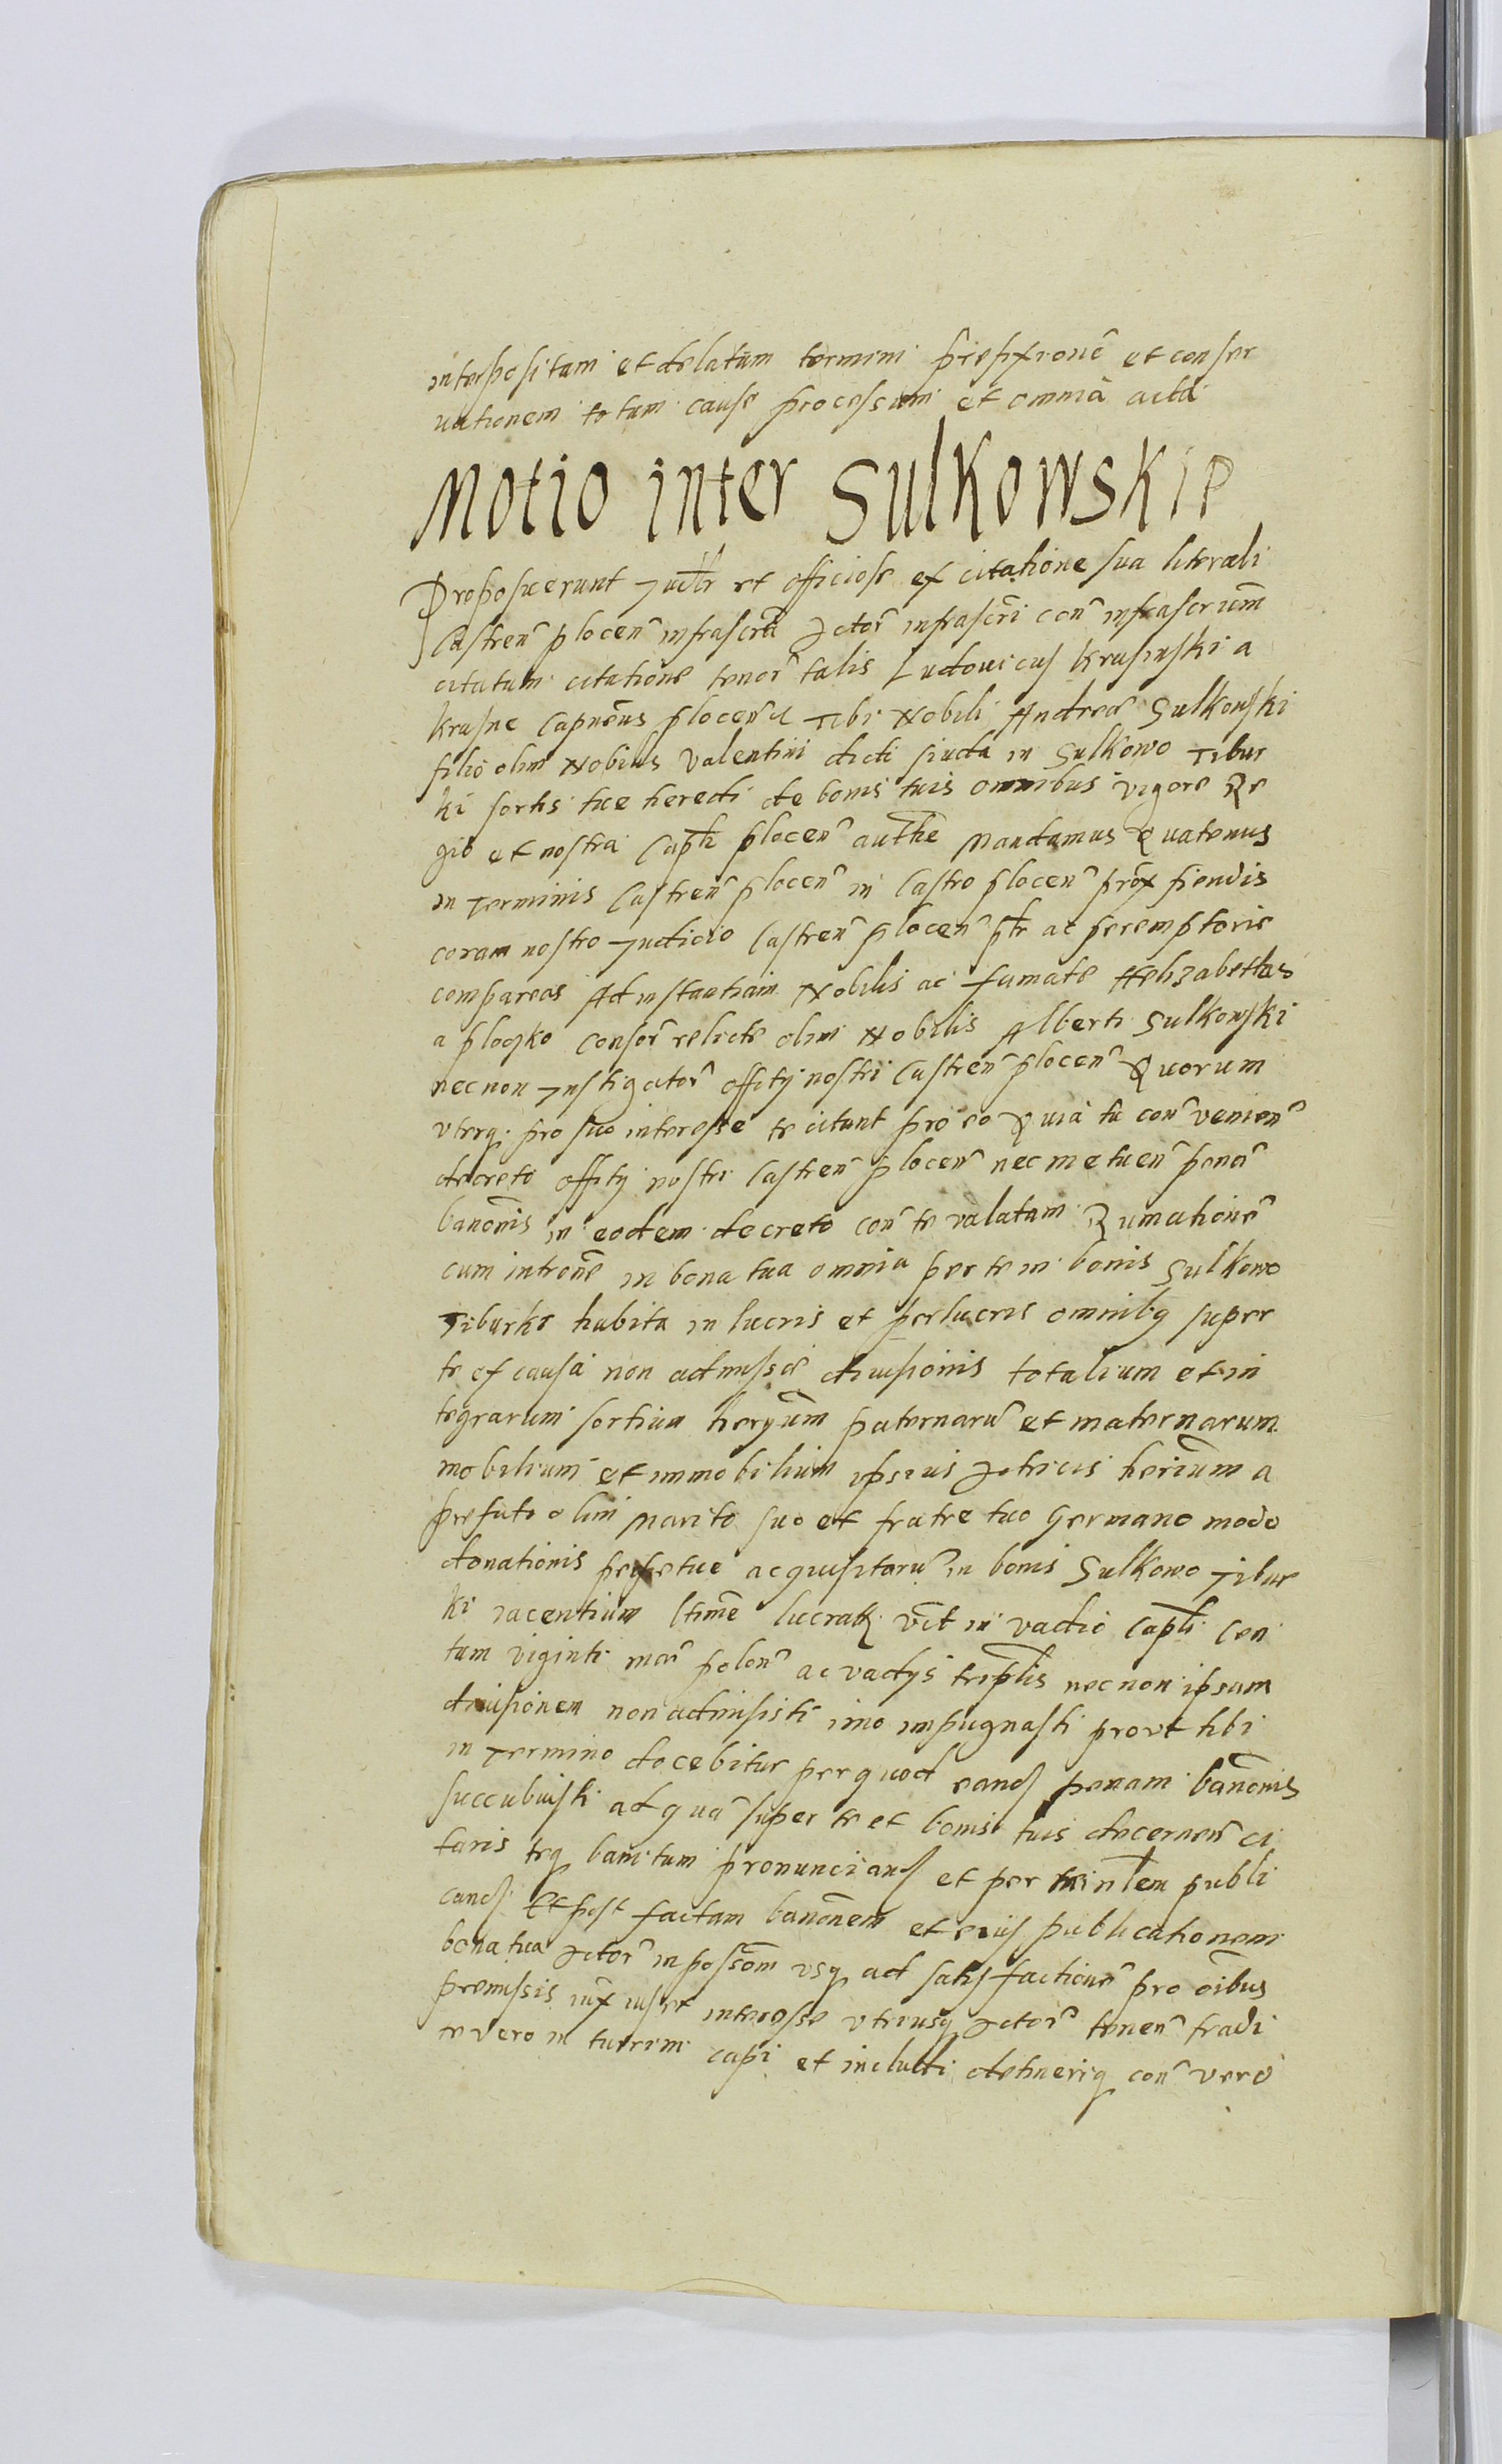 interpositam et delatam termini prefixione et conser
vationem totam cause processum et omnia acta
Motio inter Sulkowskie
Proposuerunt Judtr et officiose ex citatione sua literali
Castren plocen infrascrta Actor infrascri con infrascrium
citatum citatione tenor talis Ludovicus Krasinski a
Krasne Capneus plocen Tibi Nobili Andree Sulkowski
filio olim Nobilis Valentini dicti siuda in Sulkowo Tibur
ki sortis tue heredi de bonis tuis omnibus vigore Re
gio et nostra Capli plocen authe Mandamus Quatenus
in Terminis Castren plocen in Castro plocen prox fiendis
coram nostro Judicio Castren plocen ptr ac peremptorie
compareas Ad instantiam Nobilis ac famate Helizabethas
a plocko Consor relicte olim Nobilis Alberti Sulkowski
necnon Instigator offity nostri Castren plocen Quorum
vterq pro suo interesse te citant pro eo Quia tu con venien
decreto offity nostri Castren plocen nec metuen pena
banonis in eodem decreto con te valatam Rumatione
cum introne in bona tua omnia per te in bonis Sulkowo
Tiburki habita in lucris et perlucris omnibq super
te ex causa non admisse divisionis totalium et in
tegrarum sortium heryum paternaru et maternarum
mobilium et immobilium ipsius Actricis herium a
prefato olim Marito suo et fratre tuo Germano modo
donationis perpetue acquisitaru in bonis Sulkowo Tibur
ki iacentium ltime lucratq vct in vadio Capli Cen
tum viginti mar polon ac vadys triplis necnon ipsam
divisionem non admisisti imo impugnasti provt tibi
in Termino docebitur per quod eand penam banonis
succubuisti ad qua super te et bonis tuis decernen ci
taris teq banitum pronunciand et per minlem publi
cand Et post factam banonem et eius publicationem
bona tua Actor in possom vsq ad satisfactione pro oibus
premissis iux ius et interesse vtriusq Actor tenen tradi
te vero in turrim capi et includi detineriq con vero